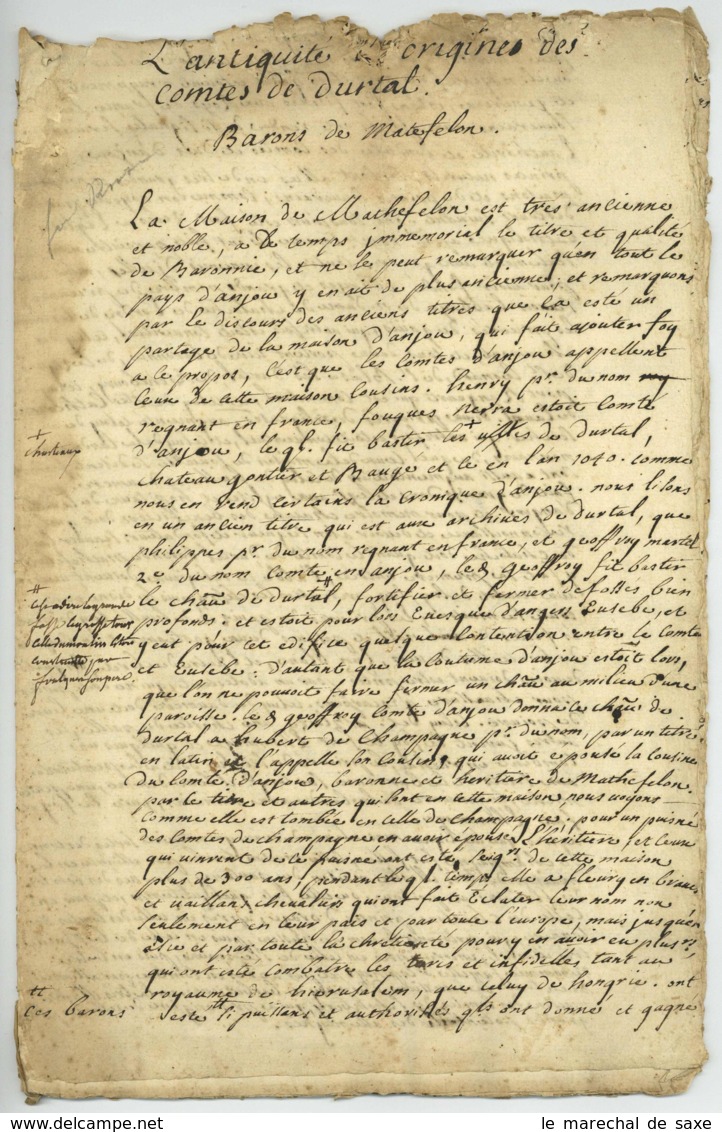 L'antiquité et origine des
Comtes de durtal.
Barons de Matefelon.
La Maison de Mathefelon est tres ancienne
et noble, a de temps immemorial le titre et qualité
de Baronnie, et ne se peut remarquer qu'en tout le
pays d'anjou y en ait de plus ancienne; et remarquons
par le discours des anciens titres que ça esté un
partage de la maison d'anjou, qui fait ajouter foy
a ce propos, c'est que les Comtes d'anjou appellent
ceux de cette maison Cousins. henry pr. du nom
regnant en france, fouques nerra estoit Comte
d'anjou, le ql. fit bastir les + villes de durtal,
+
chasteaux
chateau gontier et Baugé et ce en l'an 1040. comme
nous en rend certains la cronique d'anjou. nous lisons
en un ancien titre qui est aux archives de durtal, que
philippes pr. du nom regnant en france, et geoffroy martel
2e. du nom Comte en anjou, led. geoffroy fit bastir
le chau de durtal #, fortifier et fermer de fosses bien
profonds. et estoit pour lors Evesque d'angers Eusebe, et
y eut pour cet edifice quelque Contention entre le Comte
et Eusebe: D'autant que la Coutume d'anjou estoit lors,
que l'on ne pouvoit faire fermer un chau au milieu d'une
paroisse. led. geoffroy Comte d'anjou donna ce chau de
durtal a hubert de Champagne pr. du nom, par un titre
en latin et l'appelle son Cousin, qui avoit epousé la cousine
du Comte d'anjou, baronne et heritiere de Mathefelon.
par le titre et autres qui sont en cette maison nous voyons
comme elle est tombée en celle de Champagne. pour un puisné
des Comtes de champagne en avoir épousé L'héritiere, et ceux
qui vinrent de ce puisné ont esté seigrs. de cette maison
plus de 300 ans, pendant le ql. temps elle a fleury en braves
et vaillans chevaliers qui ont fait Eclater leur nom non
seulement en leur pais et par toute l'europe, mais jusqu'en
asie et par toute la chretienté pour y en avoir eu plusrs.
qui ont esté combatre les turcs et infidelles tant au
royaume de hierusalem, que celuy de hongrie. ont
tt
ces barons
esté tt si puissans et authorisés qls ont donné et gagné
le marechal de saxe